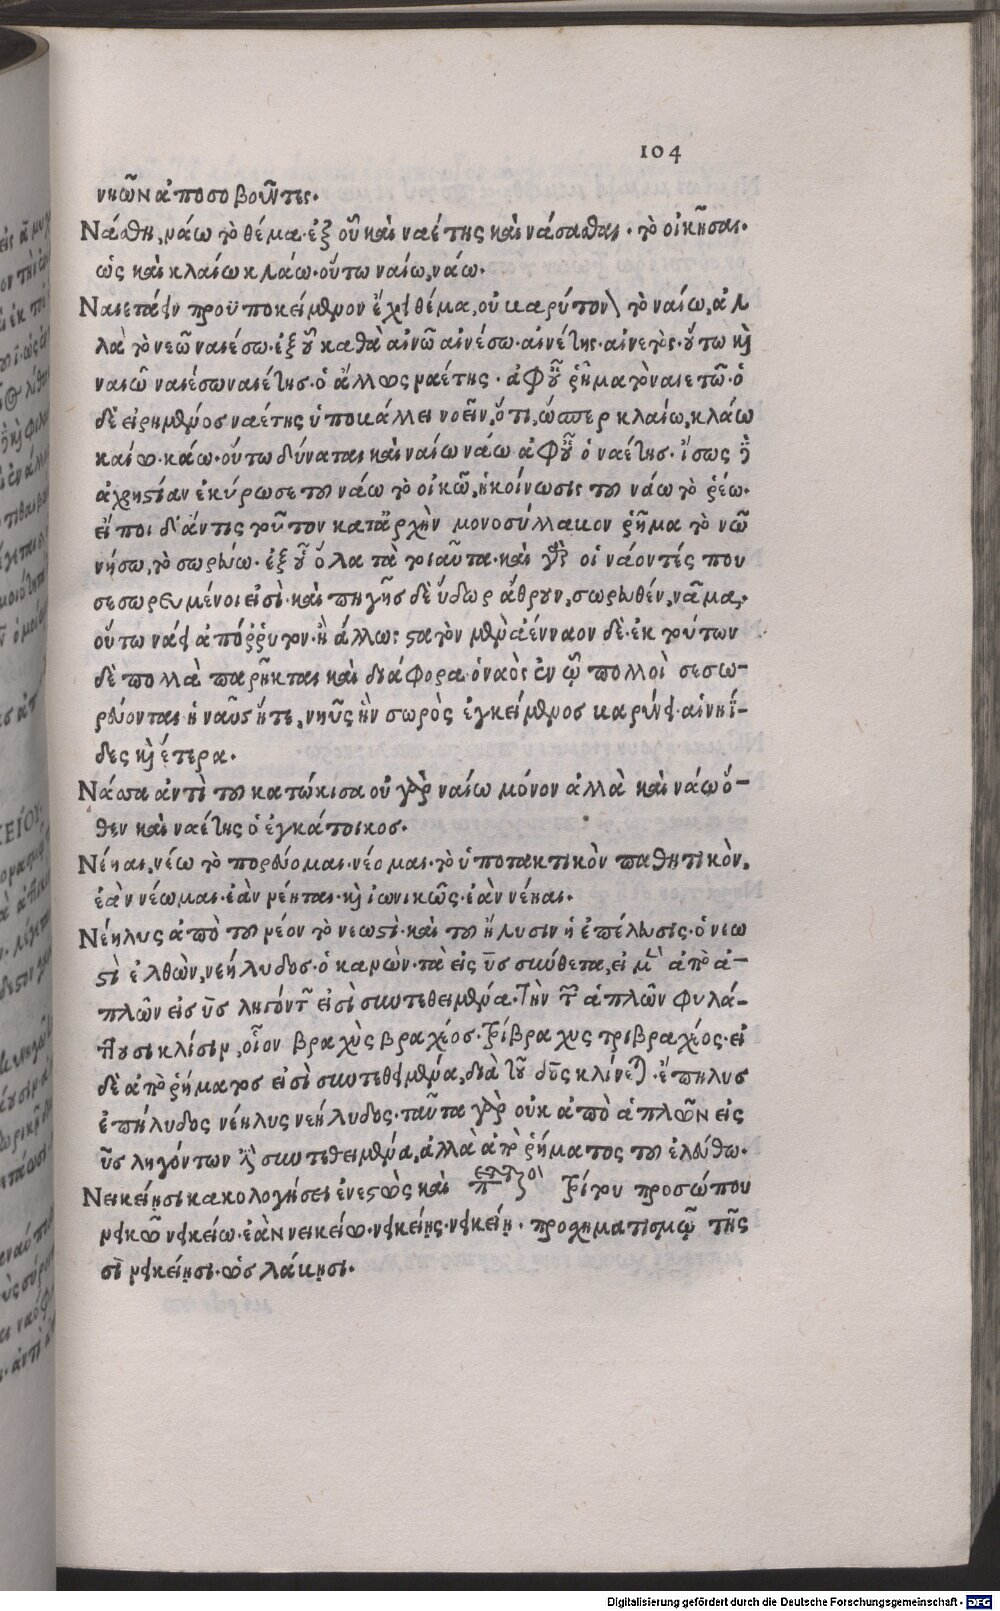 104
νηῶν ἀποσοβοῦντες.
Νάσθη, νάω τὸ θέμα· ἐξ οὗ καὶ ναέτης καὶ νάσασθαι· τὸ οἰκῆσαι.
ὡς καὶ κλαίω κλάω· οὕτω ναίω, νάω.
Ναιετάειν προϋποκείμενον ἔχει θέμα, οὐ βαρύτονον τὸ ναίω, ἀλ
λὰ τὸ νεῶν ναιέσω· ἐξ οὗ καθὰ αἰνῶ αἰνέσω· αἰνέτης· αἰνετός· οὕτω καὶ
ναιῶ ναιέσω ναιέτης· ὁ ἄλλως ναέτης· ἀφ' οὗ ῥῆμα τὸ ναιετῶ· ὁ
δὲ εἰρημένος ναέτης ὑποβάλλει νοεῖν, ὅτι, ὥσπερ κλαίω, κλάω
καίω· κάω· οὕτω δύναται καὶ ναίω νάω ἀφ' οὗ ὁ ναέτης· ἴσως
ἀχρηστίαν ἐκύρωσε τοῦ νάω τὸ οἰκῶ, ἡ κοίνωσις τοῦ νάω τὸ ῥέω.
εἴποι δ' ἄν τις τοῦτον κατ' ἀρχὴν μονοσύλλαβον ῥῆμα τὸ νῶ
νήσω, τὸ σωρεύω· ἐξ οὗ ὅλα τὰ τοιαῦτα· καὶ γὰρ οἱ νάοντές που
σεσωρευμένοι εἰσί· καὶ πηγῆς δὲ ὕδωρ ἄθρουν, σωρευθέν, νᾶμα,
οὕτω νάει ἀπόρρυτον· ἢ ἄλλως στατὸν μὲν ἀένναον δέ· ἐκ τούτων
δὲ πολλὰ παρῆκται καὶ διάφορα· ὁ ναὸς ἐν ᾧ πολλοὶ σεσώ-
ρευνται ἡ ναῦς ἥτε, νηῦς ἣν σωρὸς ἐγκείμενος βαρύνει· αἱ νηΐ-
δες καὶ ἕτερα.
Νάσσα ἀντὶ τοῦ κατώκισα οὐ γὰρ ναίω μόνον ἀλλὰ καὶ νάω ὅ-
θεν καὶ ναέτης ὁ ἐγκάτοικος.
Νέηαι, νέω τὸ πορεύομαι· νέομαι· τὸ ὑποτακτικὸν παθητικὸν,
ἐὰν νέωμαι· ἐὰν νένται· καὶ ἰωνικῶς· ἐὰν νέηαι.
Νέηλυς ἀπὸ τοῦ νέον τὸ νεωστὶ· καὶ τοῦ ἤλυσιν ἡ ἐπέλευσις· ὁ νεω
στὶ ἐλθὼν, νεήλυδος· ὁ κανών· τὰ εἰς υς σύνθετα, εἰ μὲν ἀπὸ ἁ-
πλῶν εἰς υς ληγόντων εἰσὶ συντεθειμένα· τὴν τῶν ἁπλῶν φυλά-
ττουσι κλίσιν, οἷον βραχὺς βραχέος· τρίβραχυς τριβραχέος· εἰ
δὲ ἀπὸ ῥήματος εἰσὶ συντεθειμένα, διὰ τοῦ δος κλίνεται· ἔπηλυς
ἐπήλυδος νέηλυς νεήλυδος· ταῦτα γὰρ οὐκ ἀπὸ ἁπλῶν εἰς
υς ληγόντων συντεθειμένα, ἀλλὰ ἀπὸ ῥήματος τοῦ ἐλεύθω.
Νεικείησι κακολογήσει ἐνεστὼς καὶ τρίτου προσώπου
νεικῶ νεικείω· ἐὰν νεικείω· νεικείης· νεικείη· προσχηματισμῷ τῆς
σὶ νεικείησι· ὡς λάβησι.
Digitalisierung gefördert durch die Deutsche Forschungsgemeinschaft - DFG